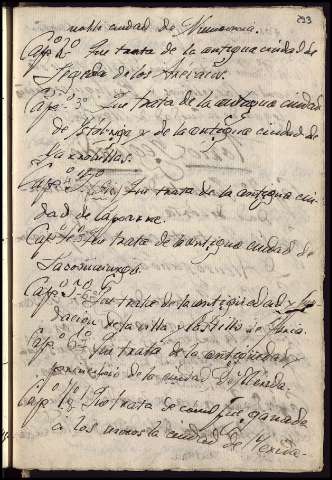 293
noble ciudad de Numancia.
Cap.º 2º Que trata de la antigua ciudad de
Segeda de los Arévacos.
Cap.º 3º Que trata de la antigua ciudad
de y de la antigua ciudad de
Cap.º Que trata de la antigua ciu-
dad de
Cap.º Que trata de antigua ciudad de
Lacomimurgo.
Cap.º 5º Que trata de la antiguedad y fun-
dacion de la villa y castillo de
Cap.º 6º Que trata de la antiguedad y
de la ciudad de Merida.
Cap.º Que trata de como fue ganada
a los moros la ciudad de Merida.